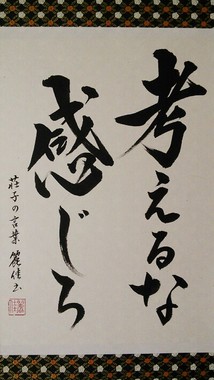 考えるな
感じろ
荘子の言葉 麗佳書